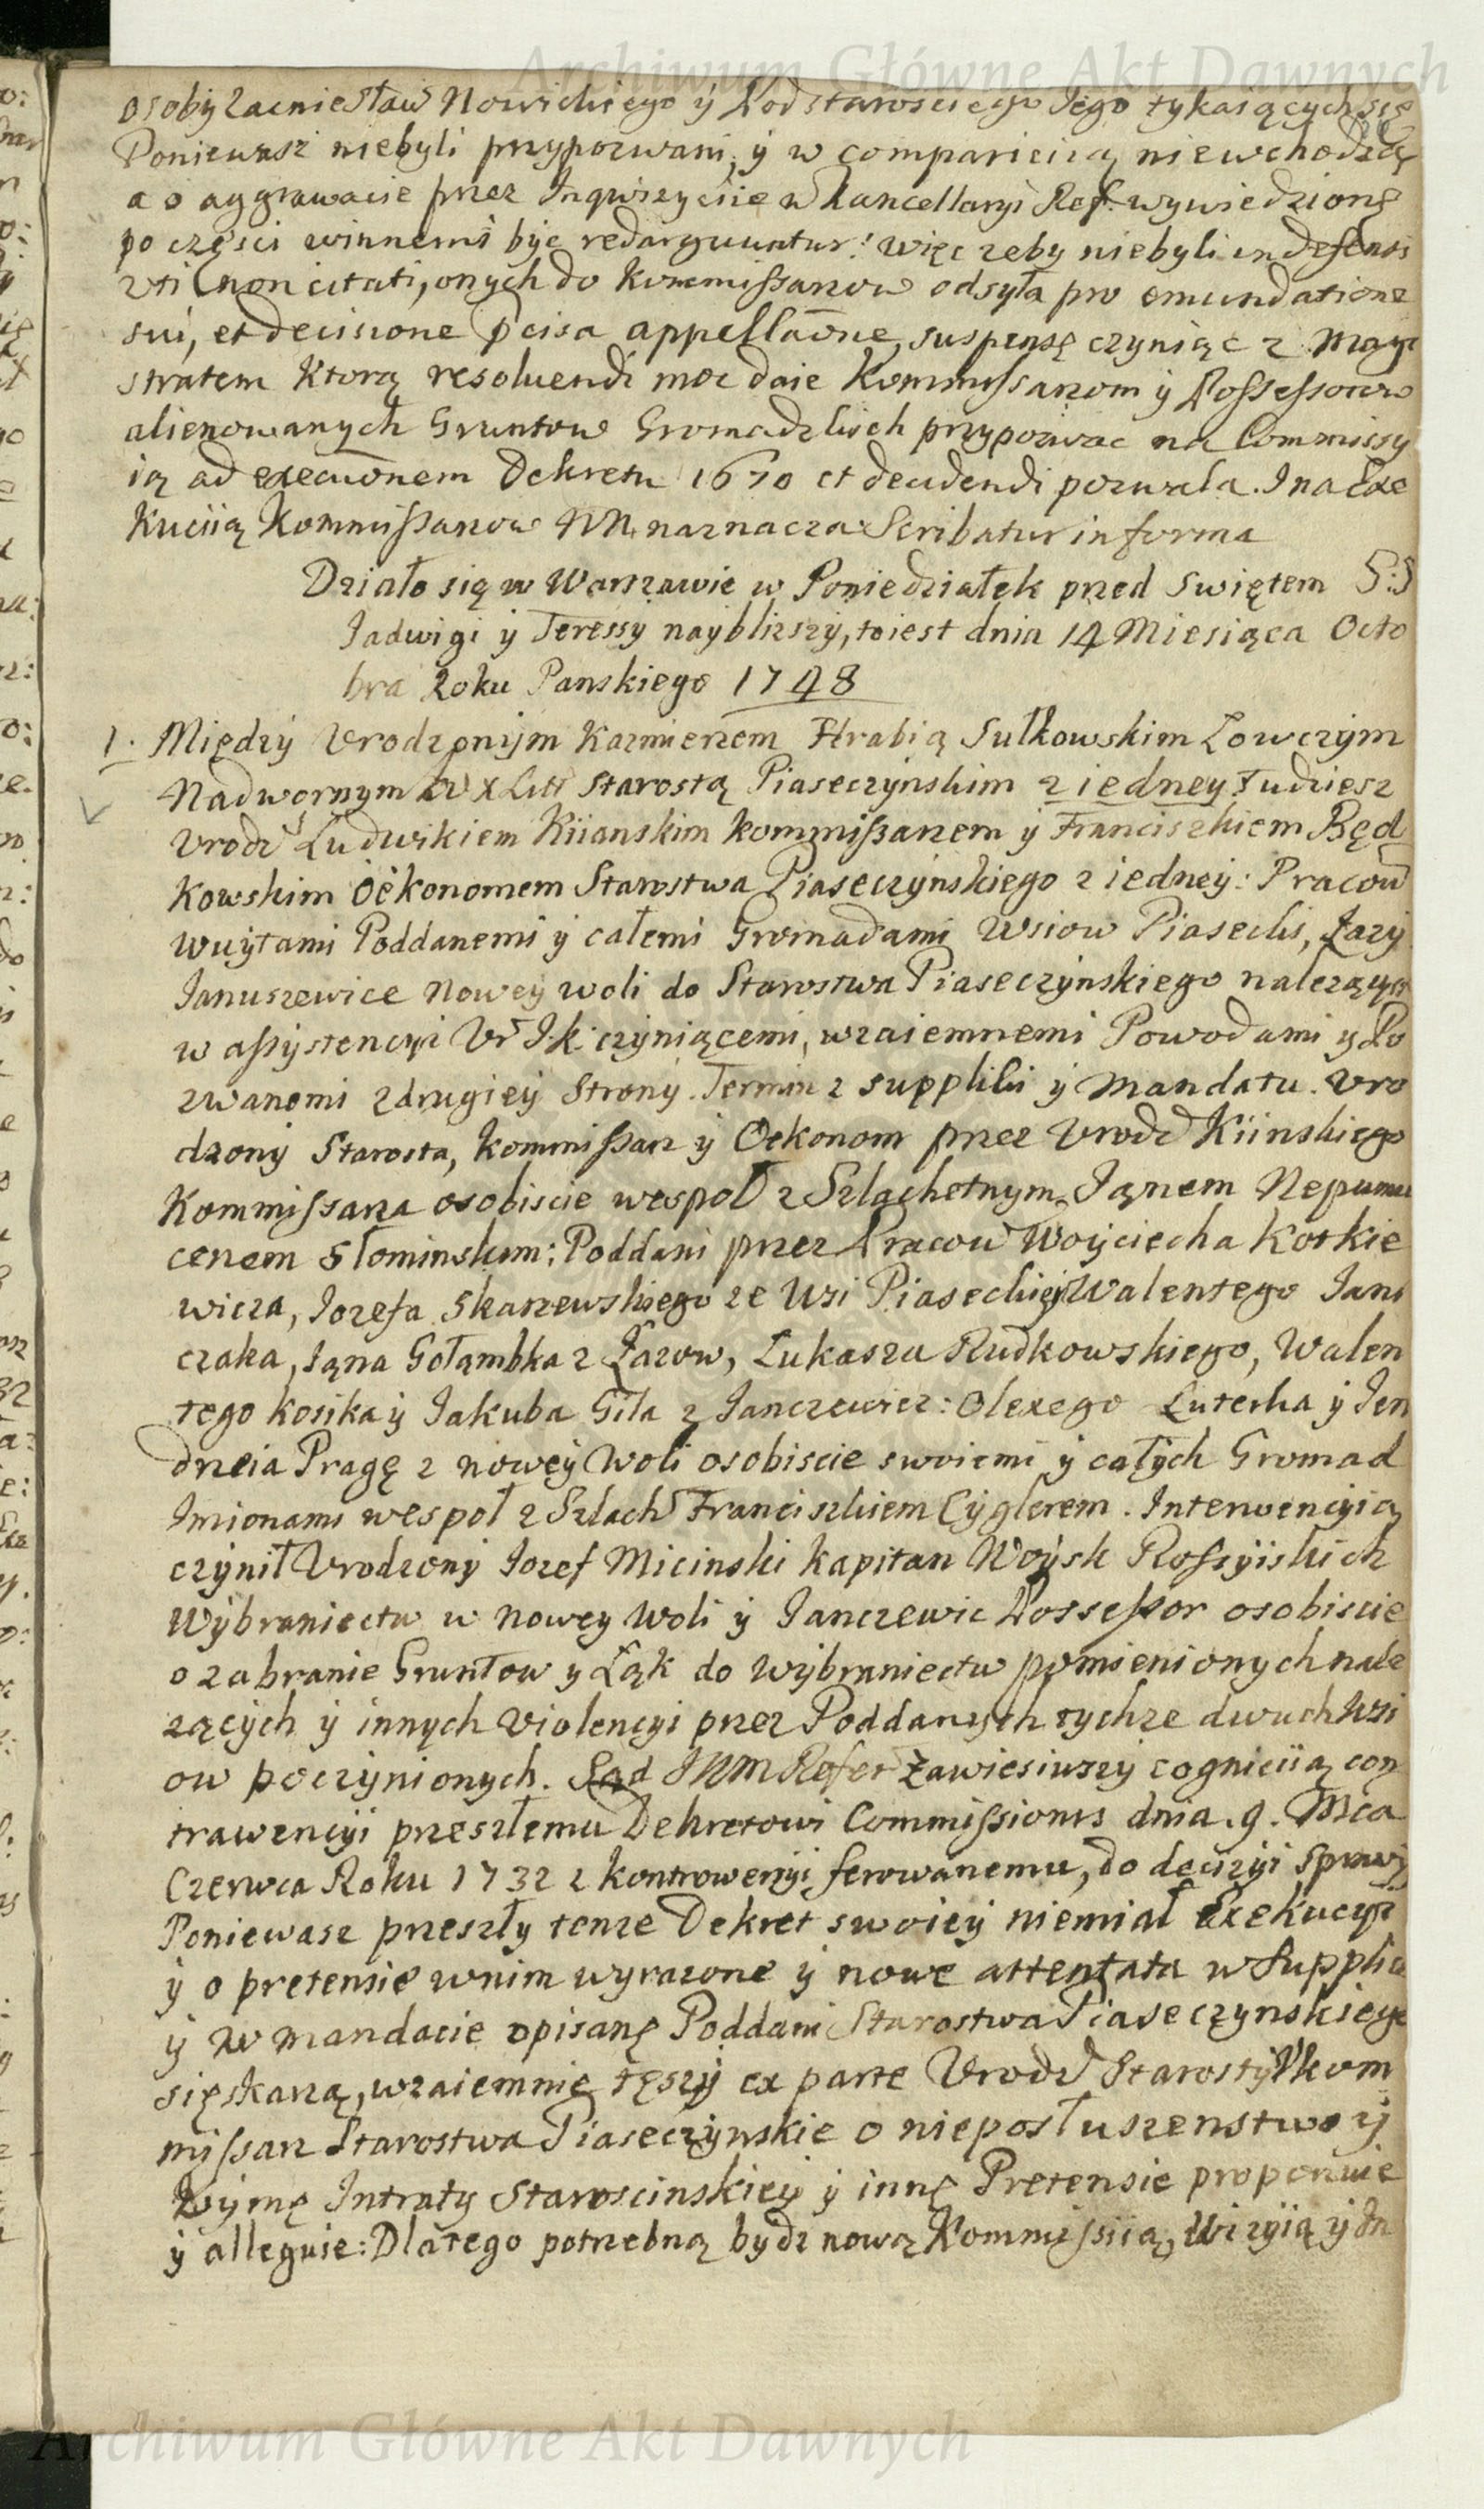 Archiwum Główne Akt Dawnych
osoby Zacniesław Nowickiego y Podstarosciego Jego tykaiących się
Poniewasz niebyli przypozwani, y w comparicią niewchodzą
a o aggrawacie przez Inqwizyciie w Kancellaryi Ref. wywiedzione
po części winnemi być redarguuntur: więc zeby niebyli indefensi
uti non citati, onych do Kommissarzow odsyła pro emundatione
sui, et decisione pcisa appellaōne, suspensę czyniąc z Magi
stratem Ktorą resoluendi moc daie Kommissarzom y Possessorow
alienowanych Gruntow Gromadzkich przypozwac na Commissy
ią ad execuōnem Dekretu 1670 et decidendi pozwala. I na Exe
kuciią Kommissarzow NN. naznacza Scribatur in forma
Działo się w Warszawie w Poniedziałek przed Swiętem S:S
Jadwigi y Teressy nayblizszy, toiest dnia 14 Miesiąca Octo
bra Roku Panskiego 1748
1. Między Urodzonym Kazmierzem Hrabią Sułkowskim Łowczym
Nadwornym W X Litt Starostą Piaseczynskim z iedney Tudziesz
Urodz Ludwikiem Kiianskim kommissarzem y Franciszkiem Będ
kowskim Oekonomem Starostwa Piaseczynskiego z iedney: Pracow
wuytami Poddanemi y całemi Gromadami Wsiow Piasecki, Łazy
Januszewice Nowey woli do Starostwa Piaseczynskiego nalezących
w assystencyi Ur I.k. czyniącemi, wzaiemnemi Powodami y Po
zwanemi zdrugiey Strony. Termin z suppliki y Mandatu. Uro
dzony Starosta, Kommissarz y Oekonom przez Urodz Kiinskiego
Kommissarza osobiscie wespoł z Szlachetnym Janem Nepumu
cenem Słominskim: Poddani przez Pracow Woyciecha Kotkie
wicza, Jozefa Skarzewskiego ze Wsi Piaseckiey Walentego Jani
czaka, Jana Gołąmbka z Łazow, Łukasza Rudkowskiego, Walen
tego Kosika y Jakuba Gila z Janczewicz: Olexego Luterka y Jen
drzeia Pragę z nowey Woli osobiscie swoiemi y całych Gromad
Imionami wespoł z Szlach Franciszkiem Cyglerem. Interwencyią
czynił Urodzony Jozef Micinski Kapitan Woysk Rossyiskich
Wybraniectw w Nowey Woli y Janczewic Possessor osobiscie
o zabranie Gruntow y Łąk do wybraniectw pomienionych nale
zących y innych violencyi przez Poddanych tychze dwuch Wsi
ow poczynionych. Sąd JKM Refer Zawiesiwszy cognicią con
trawencyi przeszłemu Dekretowi Commissionis dnia. 9. Mca
Czerwca Roku 1732 z kontrowersyi ferowanemu, do decizyi sprawy
Poniewasz przeszły tenze Dekret swoiey niemiał Exekucyi
y o pretensie wnim wyrazone y nowe attentata w Supplice
y w mandacie opisane Poddani Starostwa Piaseczynskiego
się skarzą, wzaiemnie tęszy ex parte Urodz Starosty Kom
missarz Starostwa Piaseczynskie o nieposłuszenstwo y
Uymę Intraty Staroscinskiey y inne Pretensie proponuie
y alleguie: Dlatego potrzebną bydz nową Kommissiią, Wizyią y In
Archiwum Główne Akt Dawnych